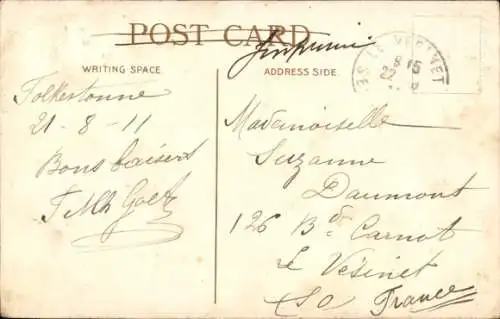 POST CARD
Imprimé
WRITING SPACE
ADDRESS SIDE
LE VESINET
8 15
22
Folkestonne
21-8-11
Bons baisers
Mademoiselle
Suzanne
Daumont
126 Bd Carnot
Le Vésinet
So France